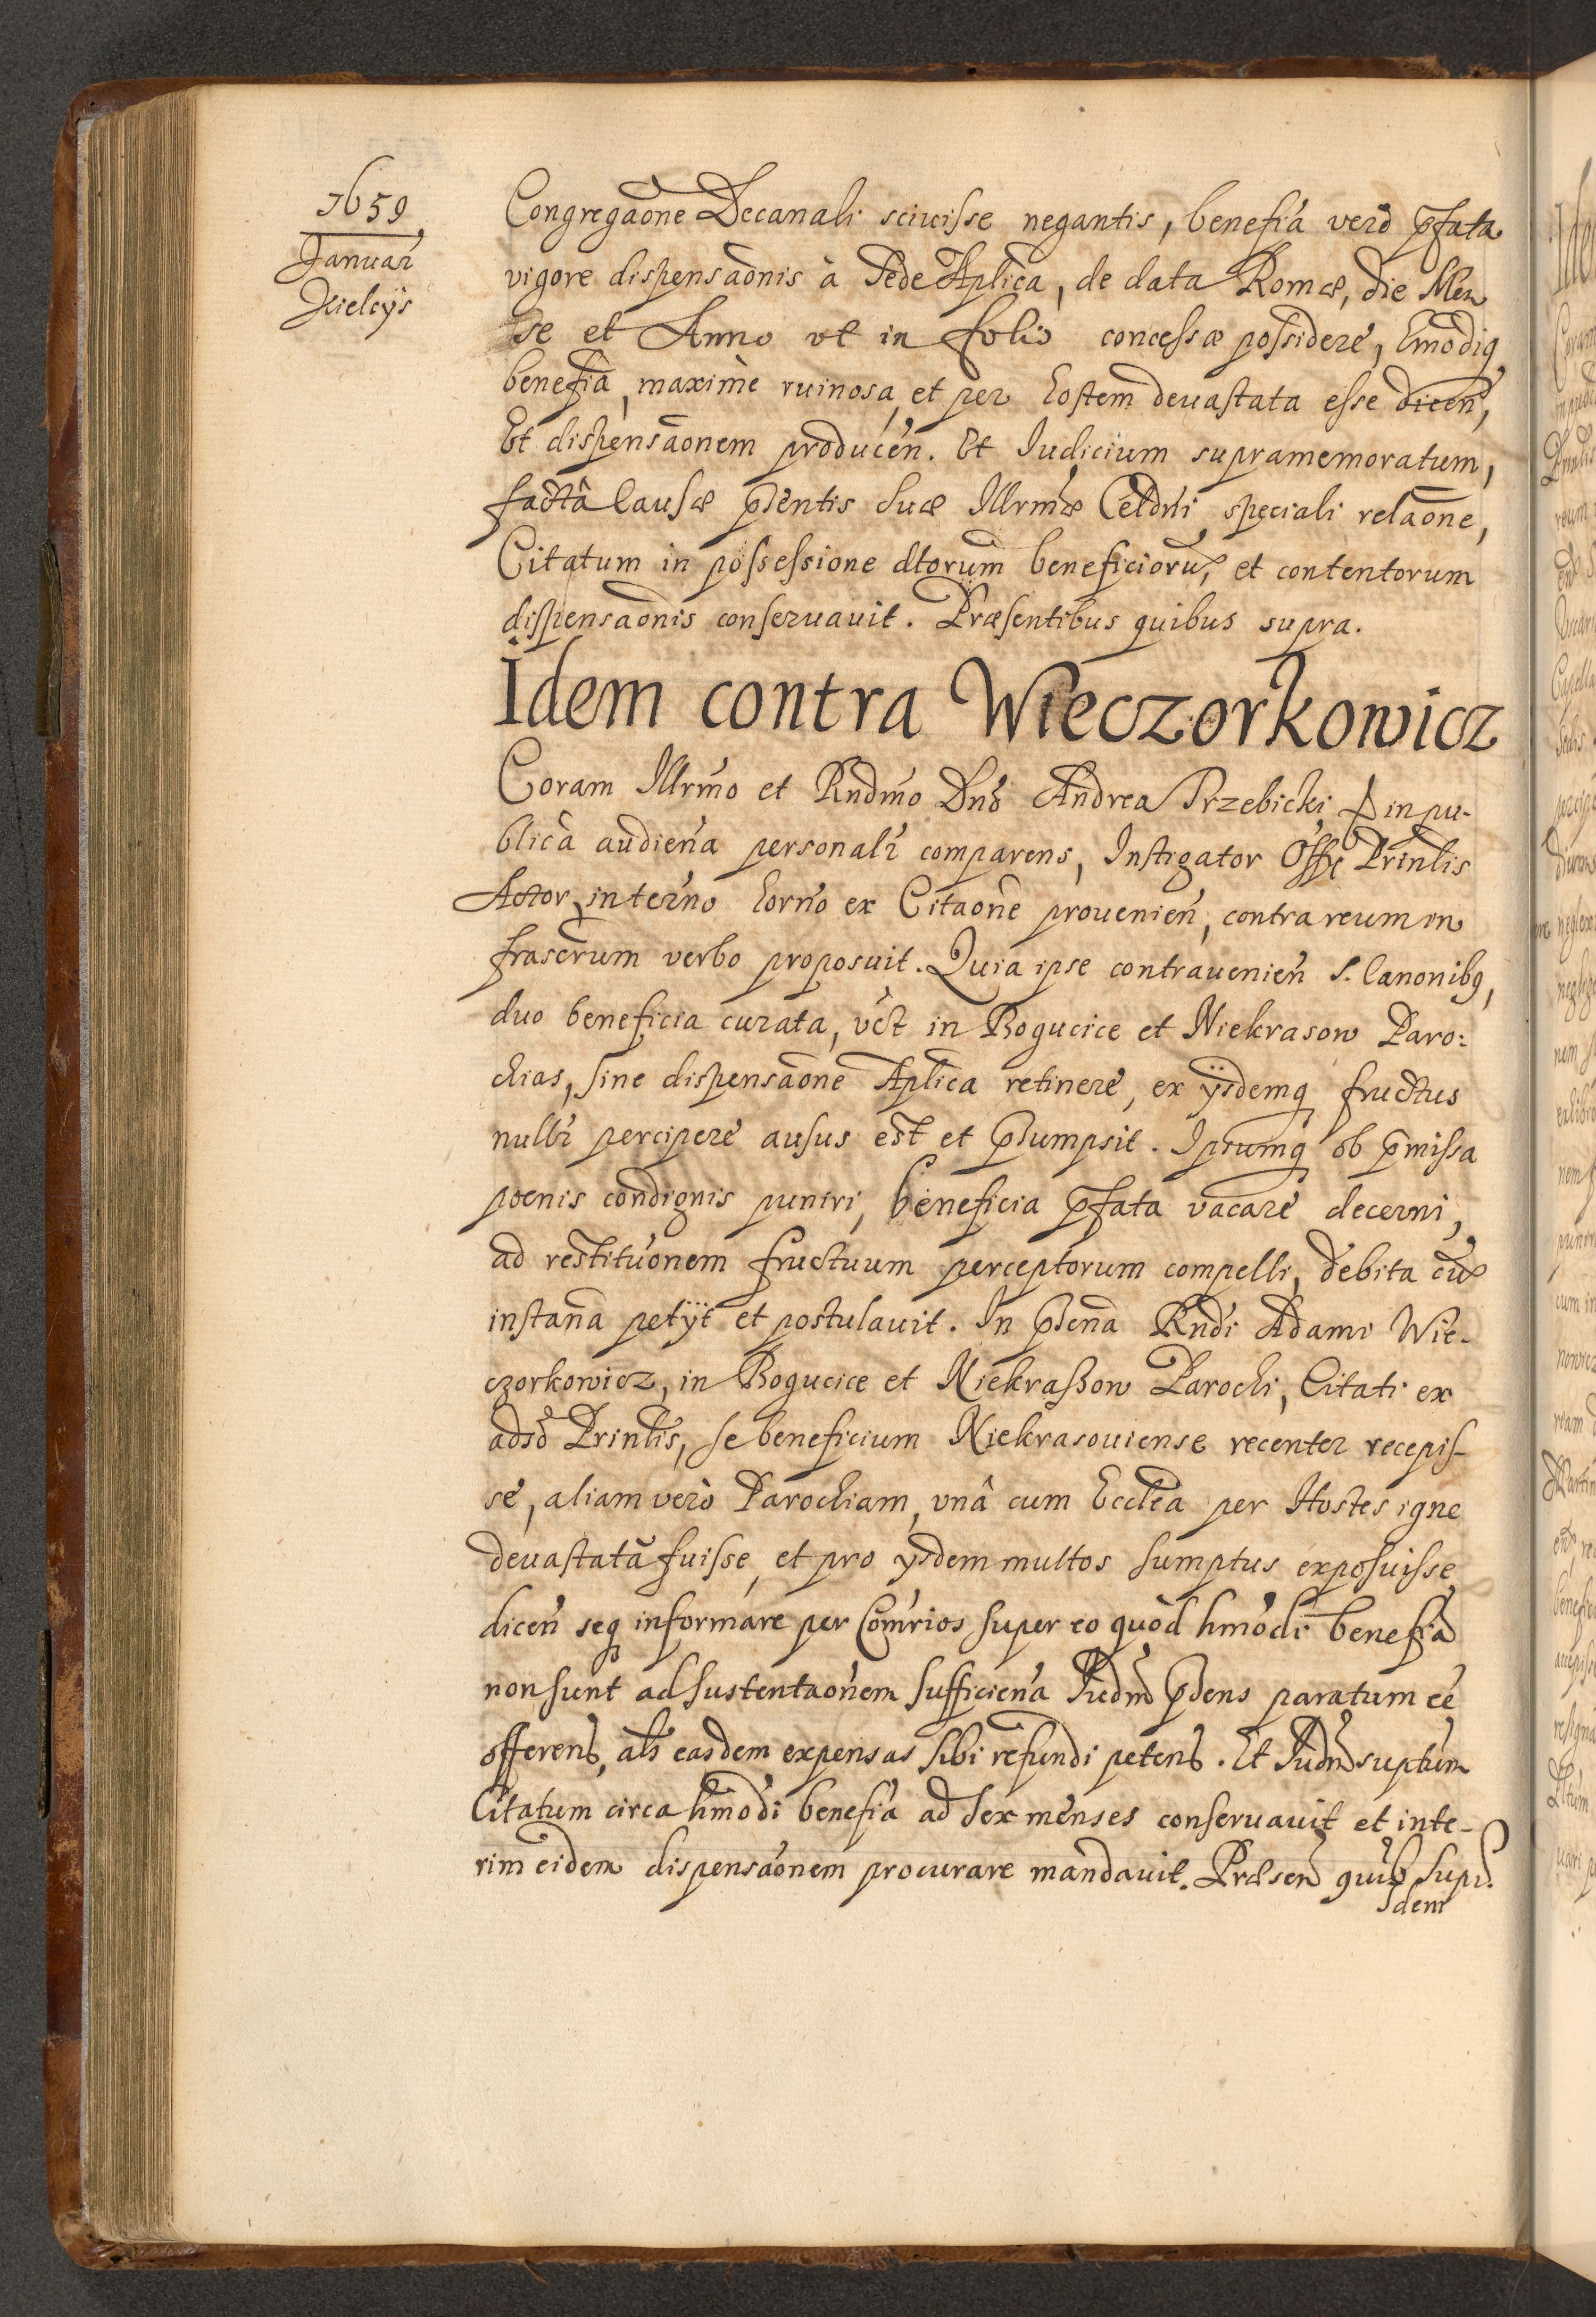 1659
Januar̃
Kielcÿs
Congregaõne Decanali sciuisse negantis, benefi͂a verò p̃fata
vigore dispensaõnis à Sede Aplica, de data Romæ, die Men
se et Anno vt in folio concessæ possidere, hmõdiq
benefia, maximè ruinosa, et per hostem deuastata esse dicen̄,
Et dispensaõnem producen̄. Et Iudicium supramemoratum,
factâ causæ p̃sentis suæ Illrmæ Celdni speciali relaõne,
Citatum in possessione dtorum beneficioru, et contentorum
dispensaõnis conseruauit. Præsentibus quibus supra.
Idem contra Wieczorkowicz
Coram Illrmo et Rndmo Dno Andrea Trzebicki, in pu-
blicâ audien̄a personalr̃ comparens, Instigator Offy Prinlis
Actor, in ter̃no horno ex Citaõne prouenien̄, contra reum in
frascrum verbo proposuit. Quia ipse contrauenien̄ S. Canonibq,
duo beneficia curata, vct in Bogucice et Niekrasow Paro:
chias, sine dispensaõne Aplica retinere, ex ÿsdemq fructus
nullr̃ percipere ausus est et p̃sumpsit. Ipsumq ob p̃missa
poenis condignis puniri, beneficia p̃fata vacare decerni,
ad restituõnem fructuum perceptorum compelli, debita cu
instan̄a petÿt et postulauit. In p̃sen̄a Rndi Adami Wie-
czorkowicz, in Bogucice et Niekraßow Parochi, Citati ex
adso Prinlis, se beneficium Niekrasouiense recenter recepis-
se, aliam verò Parochiam, vnâ cum Ecclea per Hostes igne
deuastatā fuisse, et pro ysdem multos sumptus exposuisse
dicen̄ seq informare per Com̃rios super eo quòd hmõdi benefia
non sunt ad sustentaõnem sufficien̄a Iudm p̃dens paratum eē
offerens, als easdem expensas sibi refundi petens. Et Iudm suptum
Citatum circa hmõdi benefi͂a ad sex menses conseruauit et inte-
rim eidem dispensaõnem procurare mandauit. Præsen̄ quib supr.
Idem